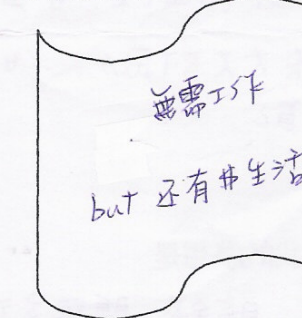 無需工作
but 还有生活